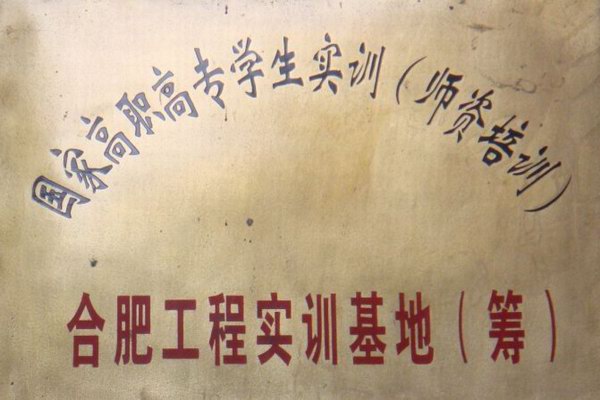 国家高职高专学生实训(师资培训)
合肥工程实训基地(筹)